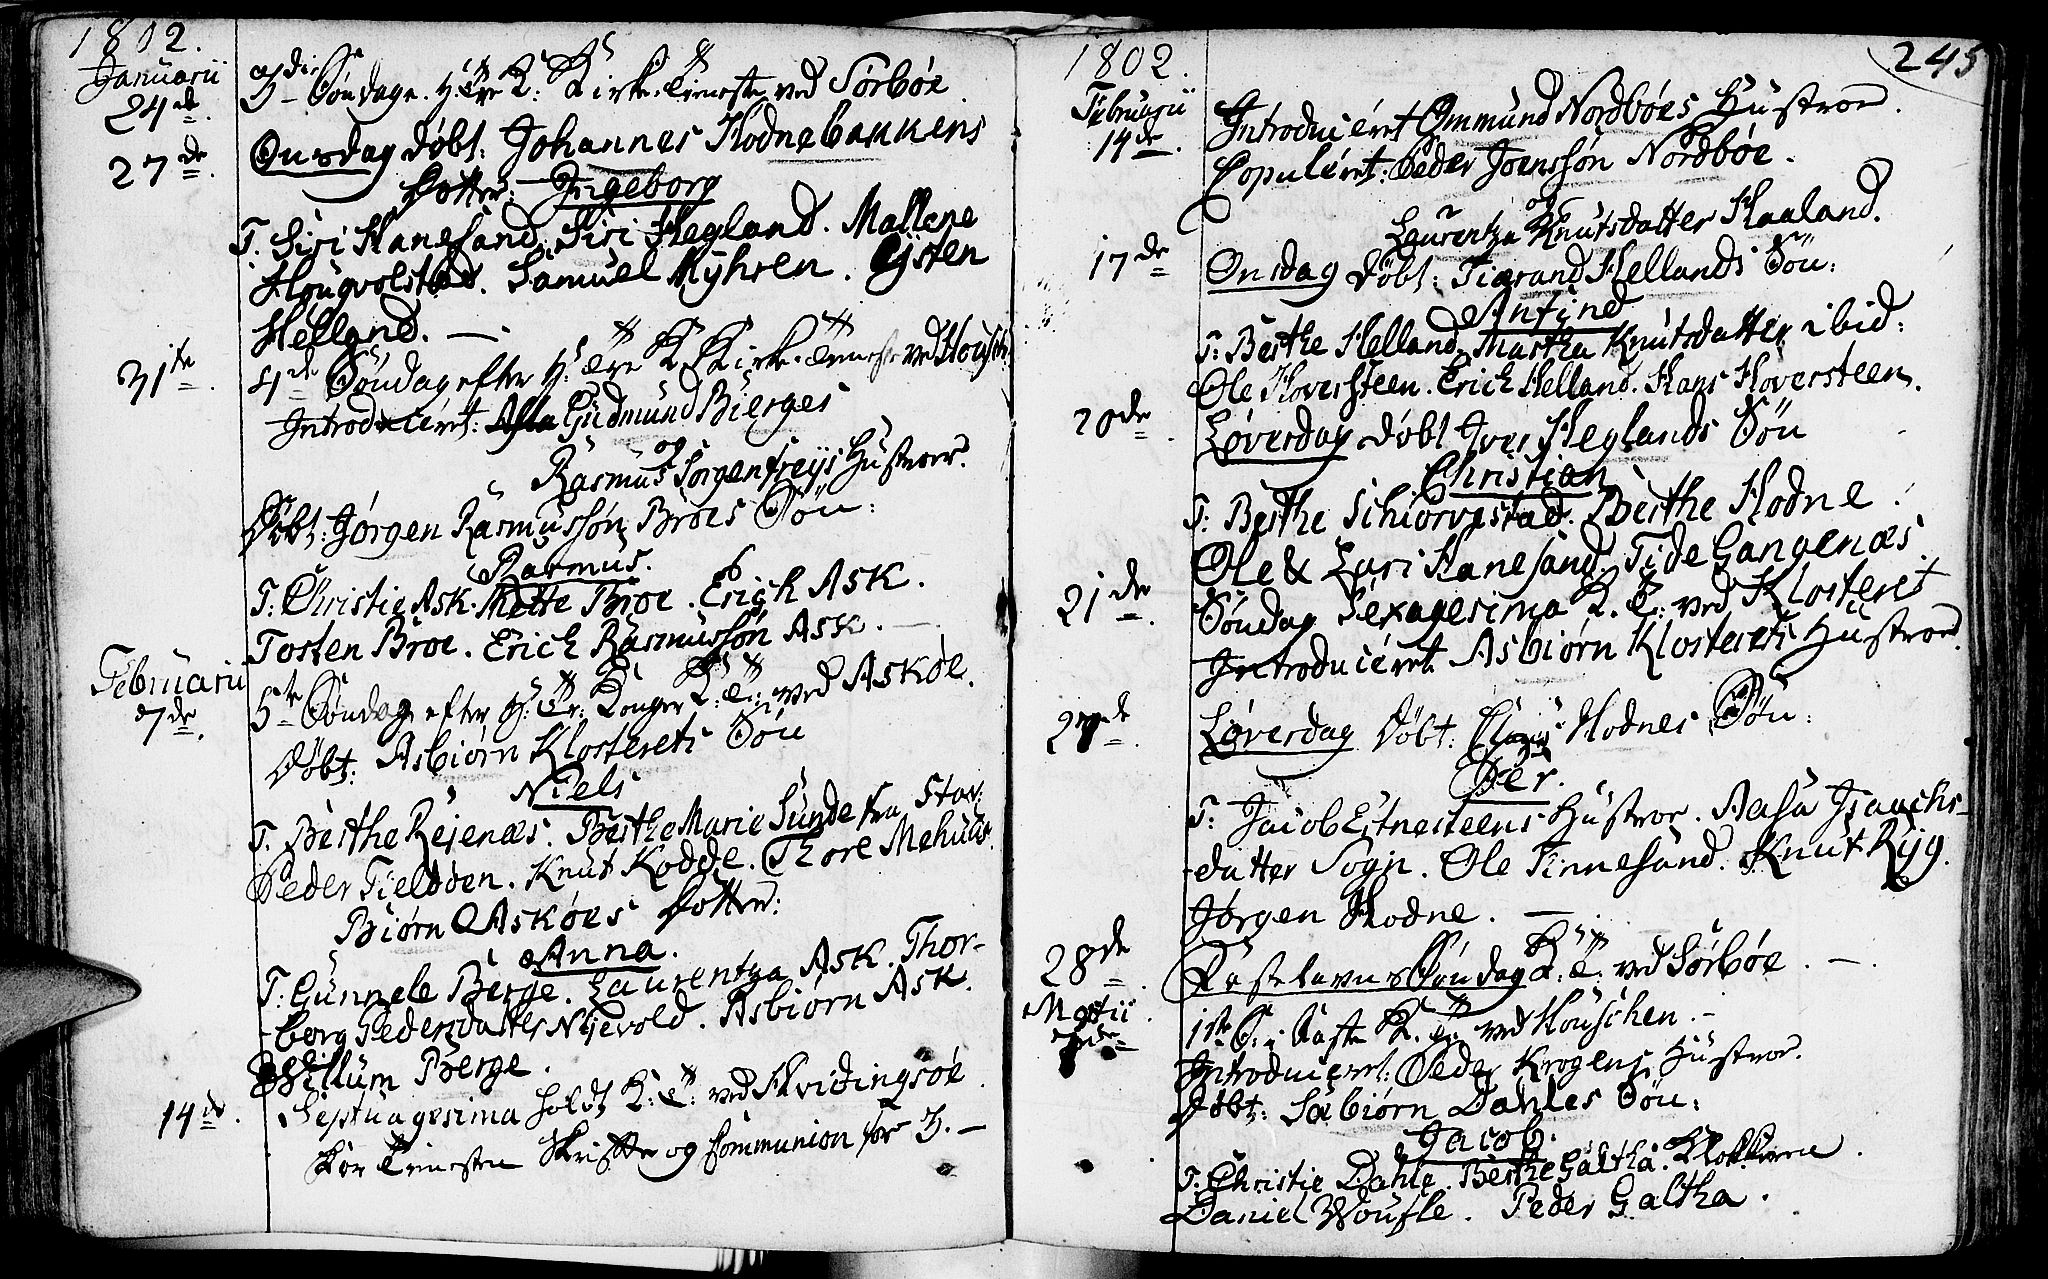 1802.
Januarii
24de
3die Søndag e. H: Tre K: Kirke-Tieneste ved Sørbøe
27de
Onsdag døbt: Johannes Hodnebakkens
Dotter: Ingeborg
T. Siri Hanesand. Siri Hegland. Mallene
Hougvolstad. Samuel Myhren. Øjsten
Helland. —
31te
4de Søndag efter H: Tre K Kirke-Tieneste ved Housch
Introduceret: Gudmund Bierges
og
Rasmus Sorgenfreys Hustroer.
Døbt: Jørgen Rasmussøn Broes Søn:
Rasmus.
T: Christie Ask. Mette Broe. Erich Ask.
Tosten Broe. Erich Rasmussøn Ask. —
Februarii
7de
5te Søndag efter H: Tr: Konger K: T: ved Askøe.
Døbt: Asbiørn Klosterets Søn
Niels
T. Berthe Rejenæs. Berthe Marie Sunde fra Stav:
Peder Fieldøen. Knut Kodde. Thore Mehuus.
Biørn Askøes Dotter:
Anna.
T: Gunnele Berge. Laurentza Ask. Thor-
-borg Pedersdatter Njevold. Asbiørn Ask.
Villum Berge.
14de
Septuagesima holdt K: T: ved Hvidingsøe.
Kor Tienesten Skrifte og Communion for 3. —
1802.
245
Februarii
14de
Introduceret Ommund Nordbøes Hustroe.
Copuleret: Peder Joenssøn Nordbøe.
og
Laurentza Knutsdatter Haaland.
17de
Onsdag døbt: Tiærand Hellands Søn:
Antjned
T: Berthe Helland, Martha Knutsdatter ibid:
Ole Hoversteen. Erich Helland. Hans Hoversteen.
20de
Løverdag døbt Iver Heglands Søn
Christian
T: Berthe Schiørvestad. Berthe Hodne.
Ole & Lari Hanesand. Tide Gangenæs.
21de
Søndag Sexagesima K. T: ved Klosteret
Introduceret Asbiørn Klosterets Hustroe.
27de
Løverdag døbt: Hodnes Søn:
Peer.
T: Jacob Estnesteens Hustroe. Aasa Isaachs-
-datter Sogn. Ole Finnesand. Knut Ryg.
Jørgen Hodne. —
28de
Fastelavns Søndag K: T: ved Sørbøe. —
Martii
7de
1ste S. i Faste K. T. ved Houschen. -
Introduceret: Peder Krogens Hustroe.
Døbt: Sæbiørn Dahles Søn:
Jacob.
T: Christie Dahle. Berthe Galtha. Klokkeren.
Daniel Woufle. Peder Galtha.